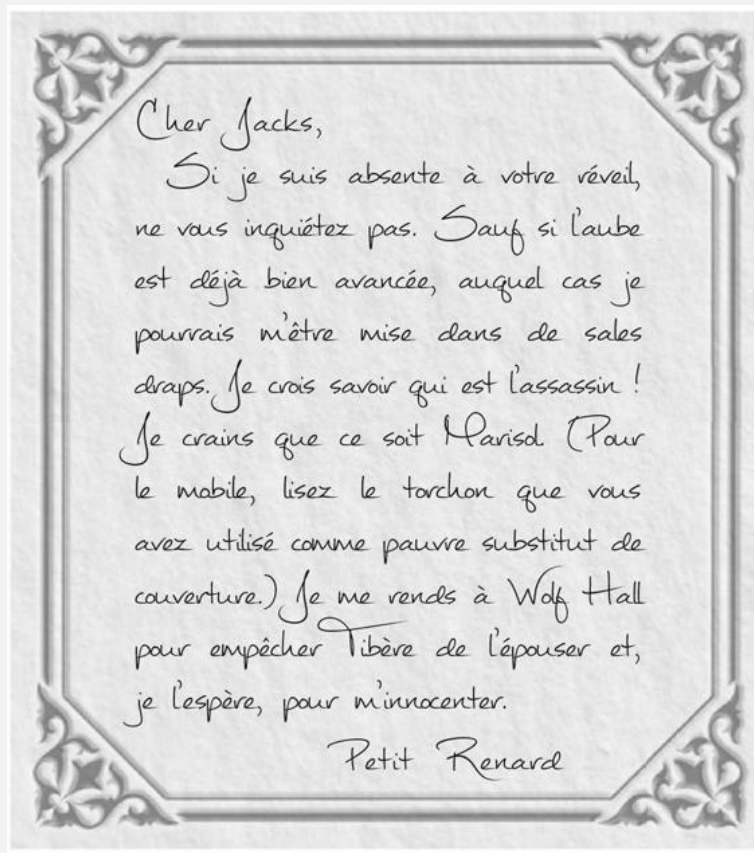 Cher Jacks,
Si je suis absente à votre réveil,
ne vous inquiétez pas. Sauf si l'aube
est déjà bien avancée, auquel cas je
pourrais m'être mise dans de sales
draps. Je crois savoir qui est l'assassin !
Je crains que ce soit Marisol. (Pour
le mobile, lisez le torchon que vous
avez utilisé comme pauvre substitut de
couverture.) Je me rends à Wolf Hall
pour empêcher Tibère de l'épouser et,
je l'espère, pour m'innocenter.
Petit Renard